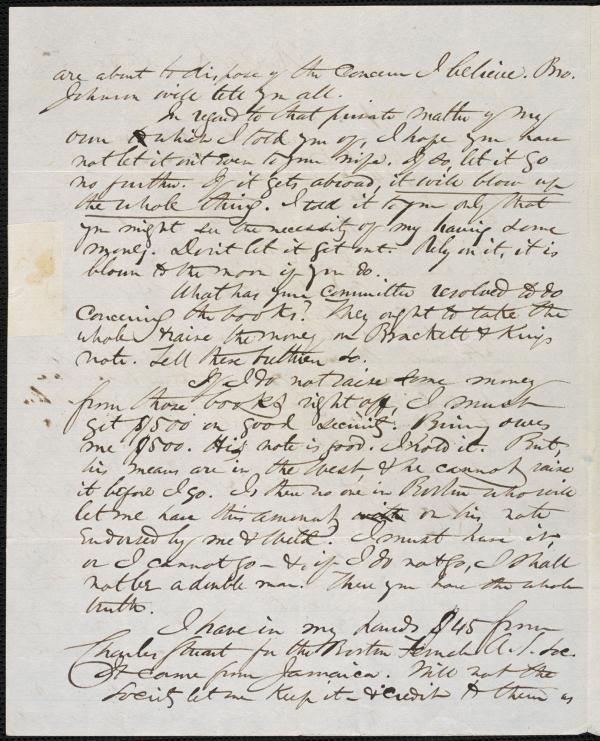 are about to dispose of the Concern I believe. Bro.
Johnson will tell you all.
In regard to that private matter of my
own of which I told you of, I hope you have
not let it out even to your wife. If so, let it go
no further. If it gets abroad, it will blow up
the whole thing. I told it to you only that
you might see the necessity of my having some
money. Don't let it get out. Rely on it, it is
blown to the moon if you do.
What has your Committee resolved to do
Concerning the books? They ought to take the
whole & raise the money on Brackett & Kings
note. Tell these brethren so.
If I do not raise some money
from those books right off, I must
get $500 on good security. Birney owes
me $500. His note is good. I hold it. But,
his means are in the West, & he cannot raise
it before I go. Is there no one in Boston who will
let me have this amount on his note
Endorsed by me & Weld? I must have it,
or I cannot go - & if I do not go, I shall
not be a double man. There you have the whole
truth.
I have in my hands $45 from
Charles Stuart for the Boston Female A. S. Soc.
It came from Jamaica. Will not the
Society let me keep it - & credit to them as